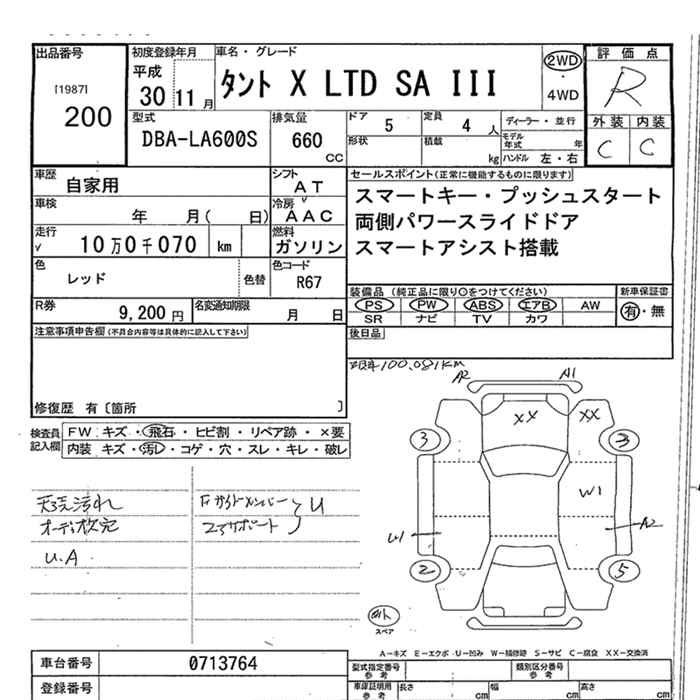 出品番号
[1987]
200
初度登録年月
平成
30 11 月
車名・グレード
タント X LTD SA III
2WD
・
4WD
評価点
R
外装 内装
C C
型式
DBA-LA600S
排気量
660
CC
ドア 5 定員 4 人
形状 積載 kg
ディーラー・並行
モデル年式 年
ハンドル 左・右
車歴 自家用
シフト AT
車検 年 月( 日)
冷房 AAC
走行 10万0千070 km
燃料 ガソリン
色 レッド 色替
色コード R67
R券 9,200 円
名変通知期限 月 日
セールスポイント(正常に機能するものに限ります)
スマートキー・プッシュスタート
両側パワースライドドア
スマートアシスト搭載
装備品 (純正品に限り○をつけてください)
PS PW ABS エアB AW
SR ナビ TV カワ
新車保証書
有・無
後日品
注意事項申告欄(不具合内容等は具体的に記入して下さい)
修復歴 有〔箇所 〕
100,081KM
検査員記入欄
FW キズ・飛石・ヒビ割・リペア跡・×要
内装 キズ・汚レ・コゲ・穴・スレ・キレ・破レ
天張汚れ
オーディオ欠
U.A
Fサイドメンバー
コアサポート
U
A2 A1
XX XX
3 3
W1
U1 A2
2 5
外
スペア
A-キズ E-エクボ U-凹み W-補修跡 S-サビ C-腐食 XX-交換済
車台番号 0713764
登録番号
型式指定番号 参考
類別区分番号 参考
車庫証明用 参考
長さ cm 幅 cm 高さ cm